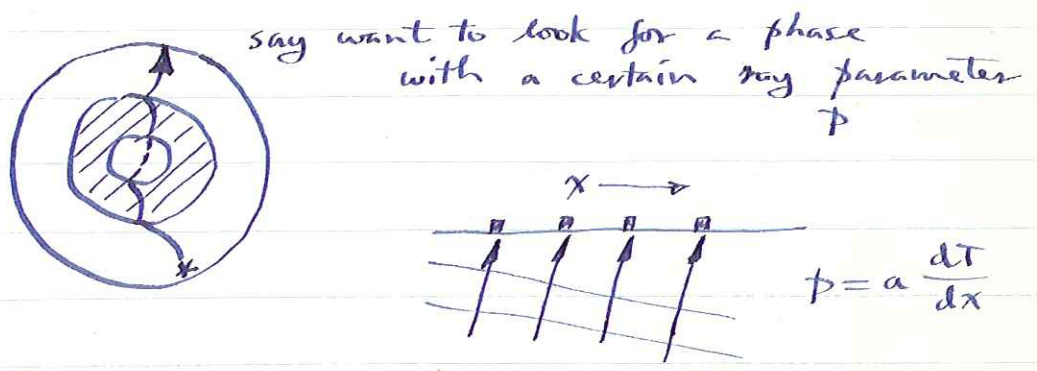 say want to look for a phase
with a certain ray parameter
p
x →
p = a dT/dx